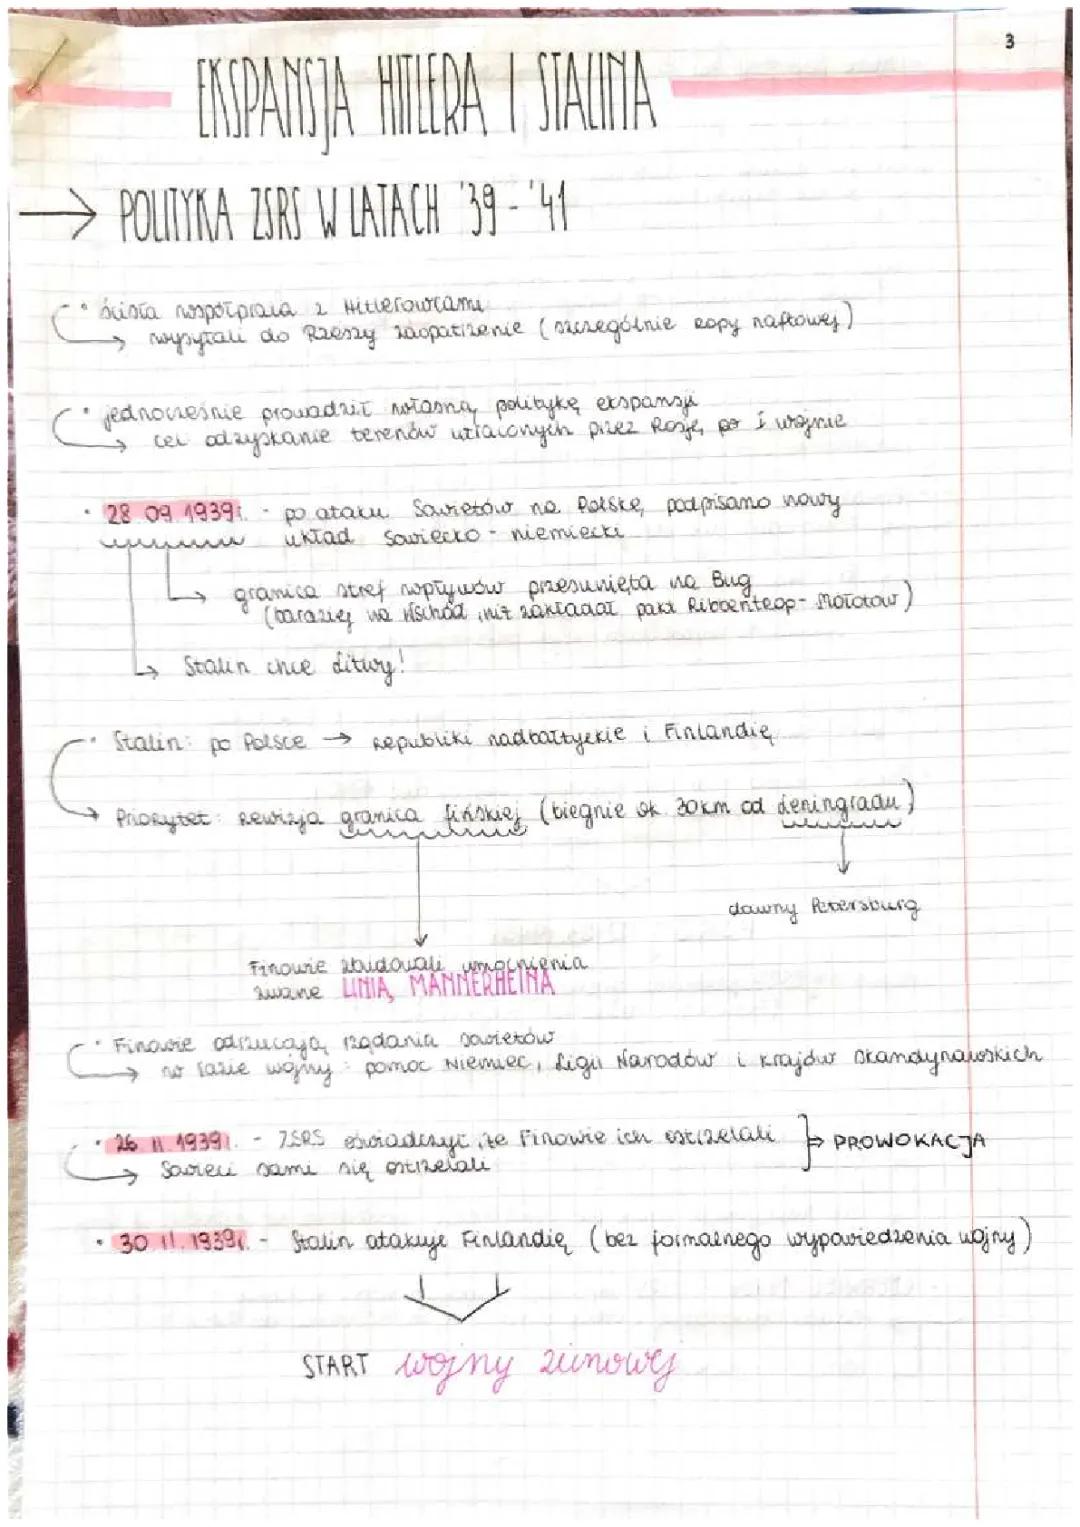 3
EKSPANSJA HITLERA I STALINA
→ POLITYKA ZSRS W LATACH '39 - '41
• ścisła współpraca z Hitlerowcami
→ wysyłali do Rzeszy zaopatrzenie (szczególnie ropy naftowej)
• jednocześnie prowadził własną politykę ekspansji
→ cel odzyskanie terenów utraconych przez Rosję po I wojnie
• 28 09 1939r. - po ataku Sowietów na Polskę, podpisano nowy
układ sowiecko - niemiecki
→ granica stref wpływów przesunięta na Bug
(bardziej na wschód, niż zakładał pakt Ribbentrop - Mołotow)
→ Stalin chce Litwy!
• Stalin: po Polsce → republiki nadbałtyckie i Finlandię
→ Priorytet: rewizja granica fińskiej (biegnie ok. 30 km od Leningradu)
dawny Petersburg
Finowie zbudowali umocnienia
zwane LINIĄ MANNERHEINA
• Finowie odrzucają rządania sowietów
→ w razie wojny: pomoc Niemiec, Ligii Narodów i krajów skandynawskich
• 26 11 1939r. - ZSRS oświadczył, że Finowie ich ostrzelali → PROWOKACJA
→ Sowieci sami się ostrzelali
• 30 11. 1939r. - Stalin atakuje Finlandię (bez formalnego wypowiedzenia wojny)
START wojny zimowej